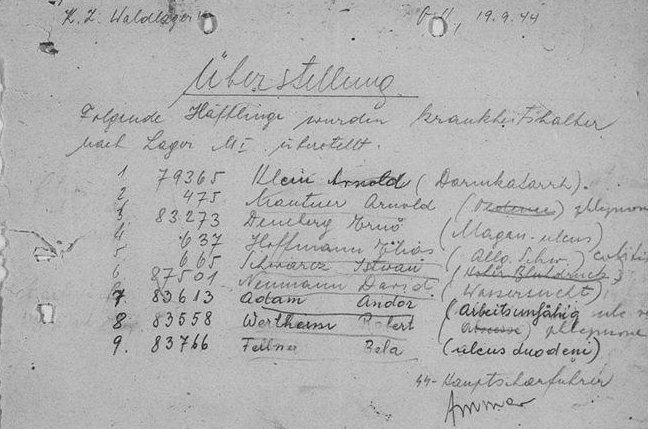 K. Z. Waldlager 19.9.44
Überstellung
Folgende Häftlinge wurden krankheitshalber
nach Lager MI. überstellt.
1 79365 Klein Arnold (Darmkatarrh).
2 475 Mautner Arnold
3 83273 Deneberg Ernö (Magen-ulcus)
4 637 Hoffmann (Allg. Schw.)
5 665 Schwarcz Istvan
6 87501 Neumann David (Wassersucht)
7 83613 Adam Andor (Arbeitsunfähig
8 83558 Wertheim Robert
9. 83766 Fellner Bela (ulcus duodeni)
SS-Hauptscharführer